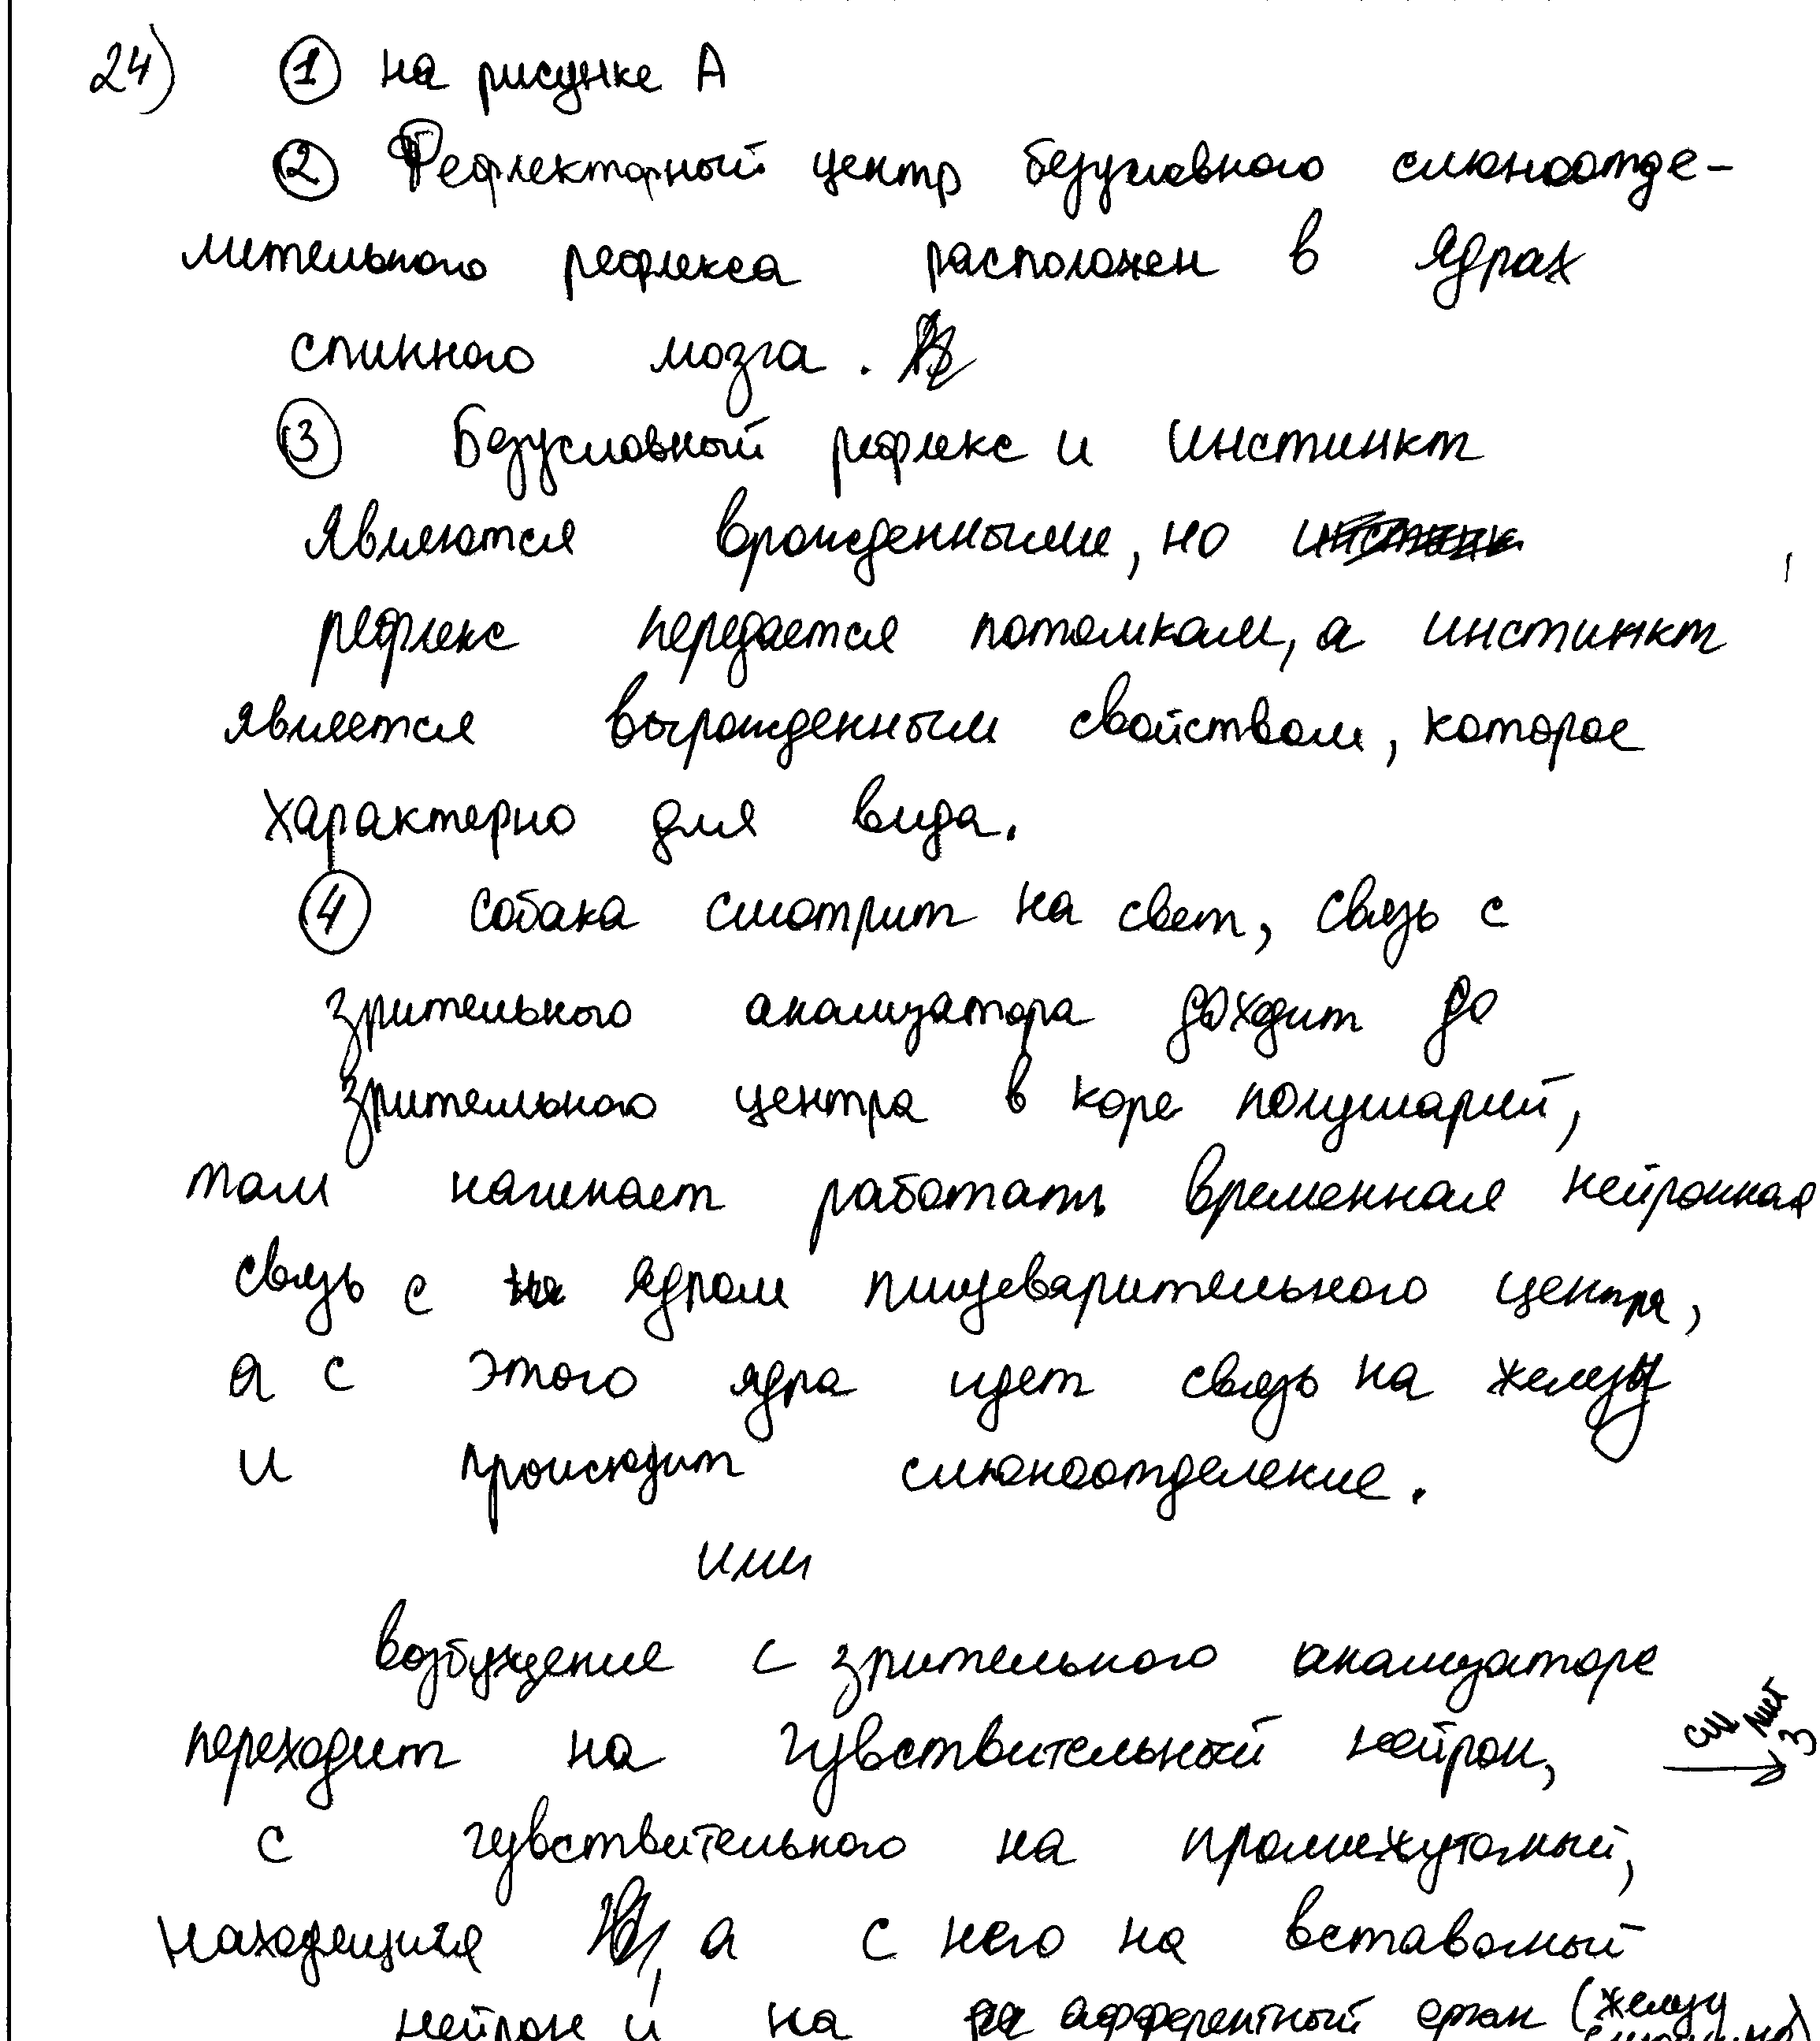 24) ① на рисунке А
② Рефлекторный центр безусловного слюноотде-
лительного рефлекса расположен в ядрах
спинного мозга.
③ Безусловный рефлекс и инстинкт
являются врожденными, но
рефлекс передается потомкам, а инстинкт
является вырожденным свойством, которое
характерно для вида.
④ Собака смотрит на свет, связь с
зрительного анализатора доходит до
зрительного центра в коре полушарий,
там начинает работать временная нейронная
связь с ядром пищеварительного центра,
а с этого ядра идет связь на железы
и происходит слюноотделение.
или
возбуждение с зрительного анализаторе
переходит на чувствительный нейрон,
см лист 3
с чувствительного на промежуточный,
находящийся а с него на вставочный
нейрон и на афферентный орган (железу